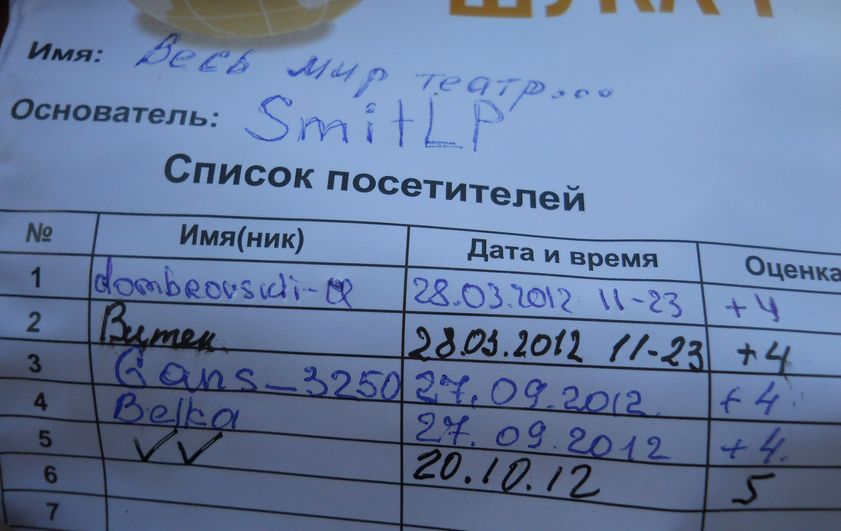 ШУКАЧ
Имя: Весь мир театр...
Основатель: SmitLP
Список посетителей
№ Имя(ник) Дата и время Оценка
1 dombrovski-a 28.03.2012 11-23 +4
2 Витек 28.03.2012 11-23 +4
3 Gans_3250 27.09.2012 +4
4 Belka 27.09.2012 +4
5 √√ 20.10.12 5
6
7